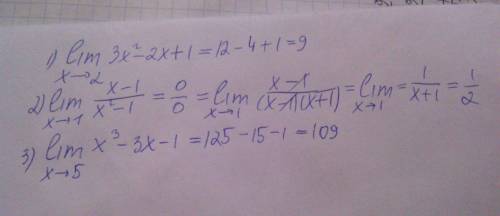 1) lim x→2 3x²-2x+1 = 12-4+1 = 9
2) lim x→1 x-1/x²-1 = 0/0 = lim x→1 x-1/(x-1)(x+1) = lim x→1 = 1/x+1 = 1/2
3) lim x→5 x³-3x-1 = 125-15-1 = 109